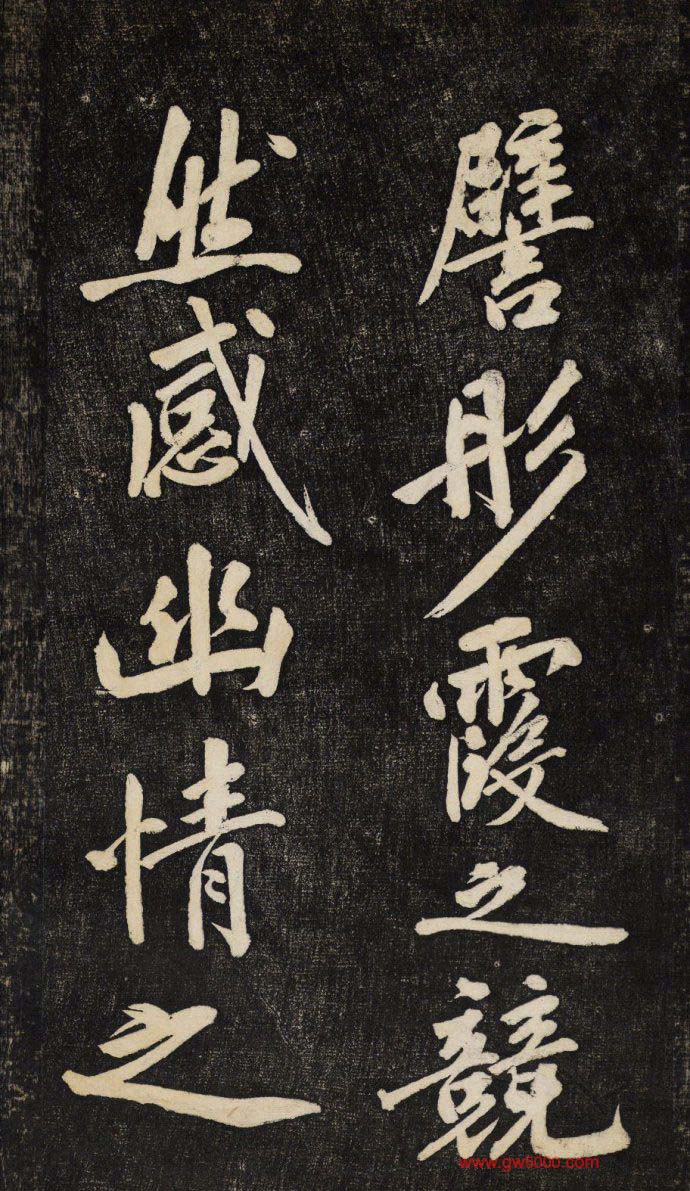 譬彤霞之競
然感幽情之
www.gw6000.com